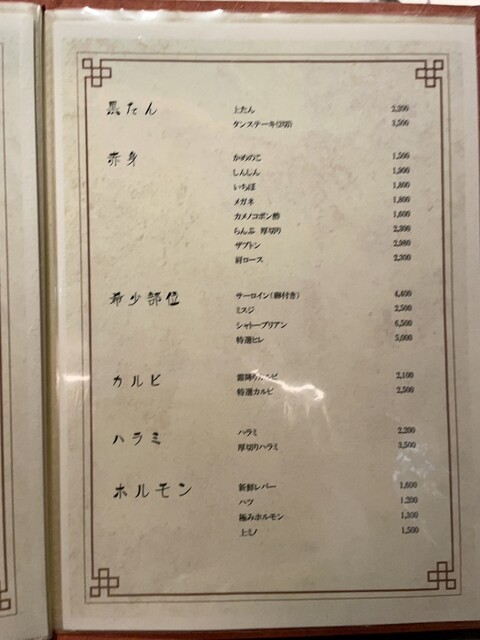 黒たん
上たん 2,200
タンステーキ(厚切) 3,500
赤身
かめのこ 1,500
しんしん 1,900
いちぼ 1,800
メガネ 1,800
カメノコポン酢 1,600
らんぷ 厚切り 2,300
ザブトン 2,980
肩ロース 2,300
希少部位
サーロイン(卵付き) 4,400
ミスジ 2,500
シャトーブリアン 6,500
特選ヒレ 5,000
カルビ
霜降りカルビ 2,100
特選カルビ 2,500
ハラミ
ハラミ 2,200
厚切りハラミ 3,500
ホルモン
新鮮レバー 1,600
ハツ 1,200
極みホルモン 1,300
上ミノ 1,500